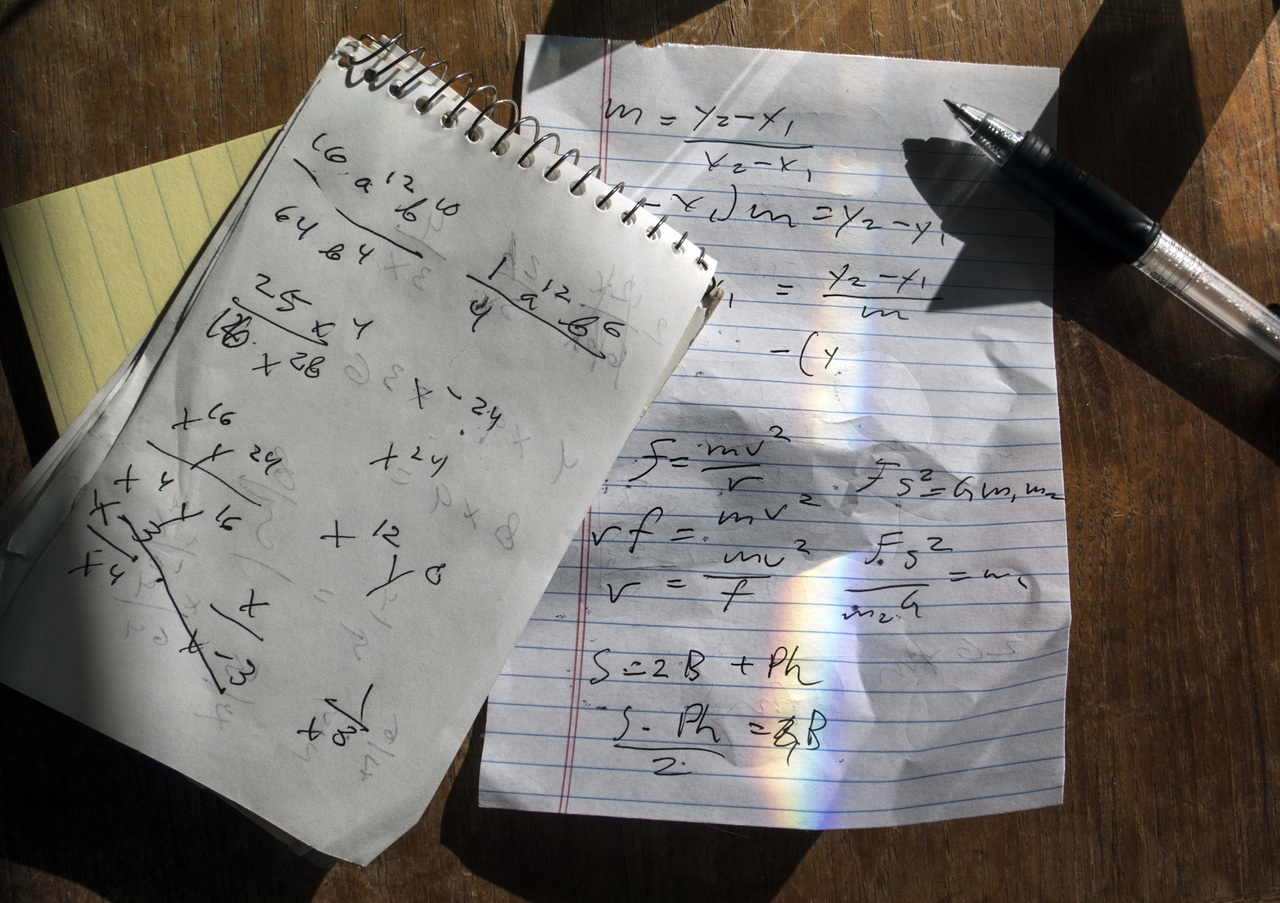 16 a^12 b^10
64 b^4
1 a^12 b^6
4
25 x^4
x^28
x^-24
x^16
x^24
x^24
x^4
x^16
x^12
x^4
x^8
x
x^13
1
x^8
m = y₂-y₁
x₂-x₁
- x₁) m = y₂-y₁
x₁ = y₂-y₁
m
-(y
f = mv²
r
F s² = G m₁ m₂
r f = mv²
r = mv²
f
F s² = m₁
m₂ G
S = 2B + Ph
S - Ph = B
2